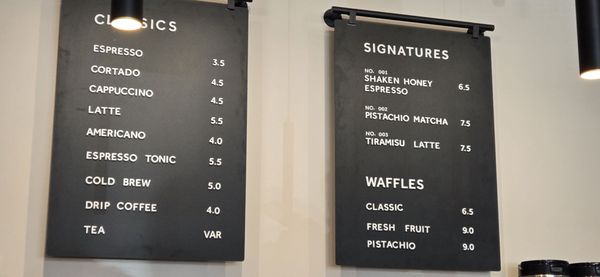 CLASSICS
ESPRESSO 3.5
CORTADO 4.5
CAPPUCCINO 4.5
LATTE 5.5
AMERICANO 4.0
ESPRESSO TONIC 5.5
COLD BREW 5.0
DRIP COFFEE 4.0
TEA VAR
SIGNATURES
NO. 001
SHAKEN HONEY
ESPRESSO 6.5
NO. 002
PISTACHIO MATCHA 7.5
NO. 003
TIRAMISU LATTE 7.5
WAFFLES
CLASSIC 6.5
FRESH FRUIT 9.0
PISTACHIO 9.0